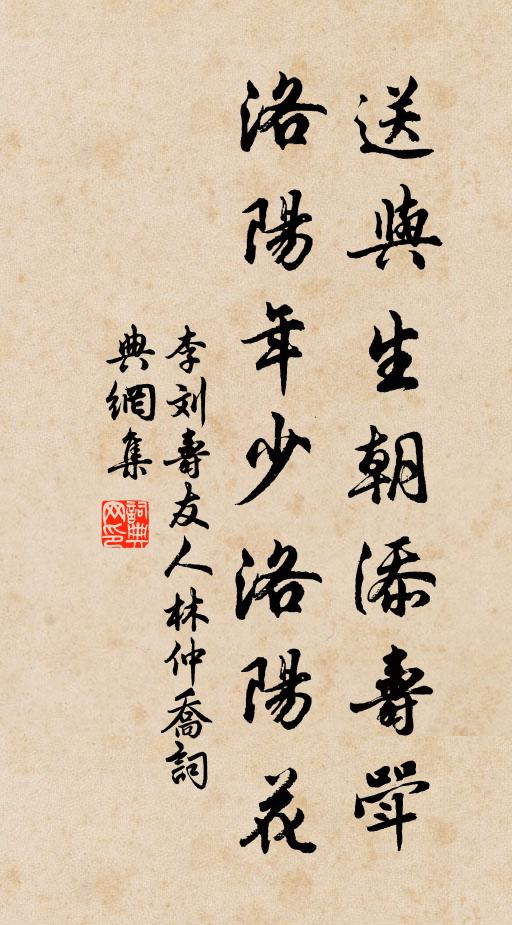 送與生朝添壽斝
洛陽年少洛陽花
李刘壽友人林仲喬詞
典網集
詞典网印